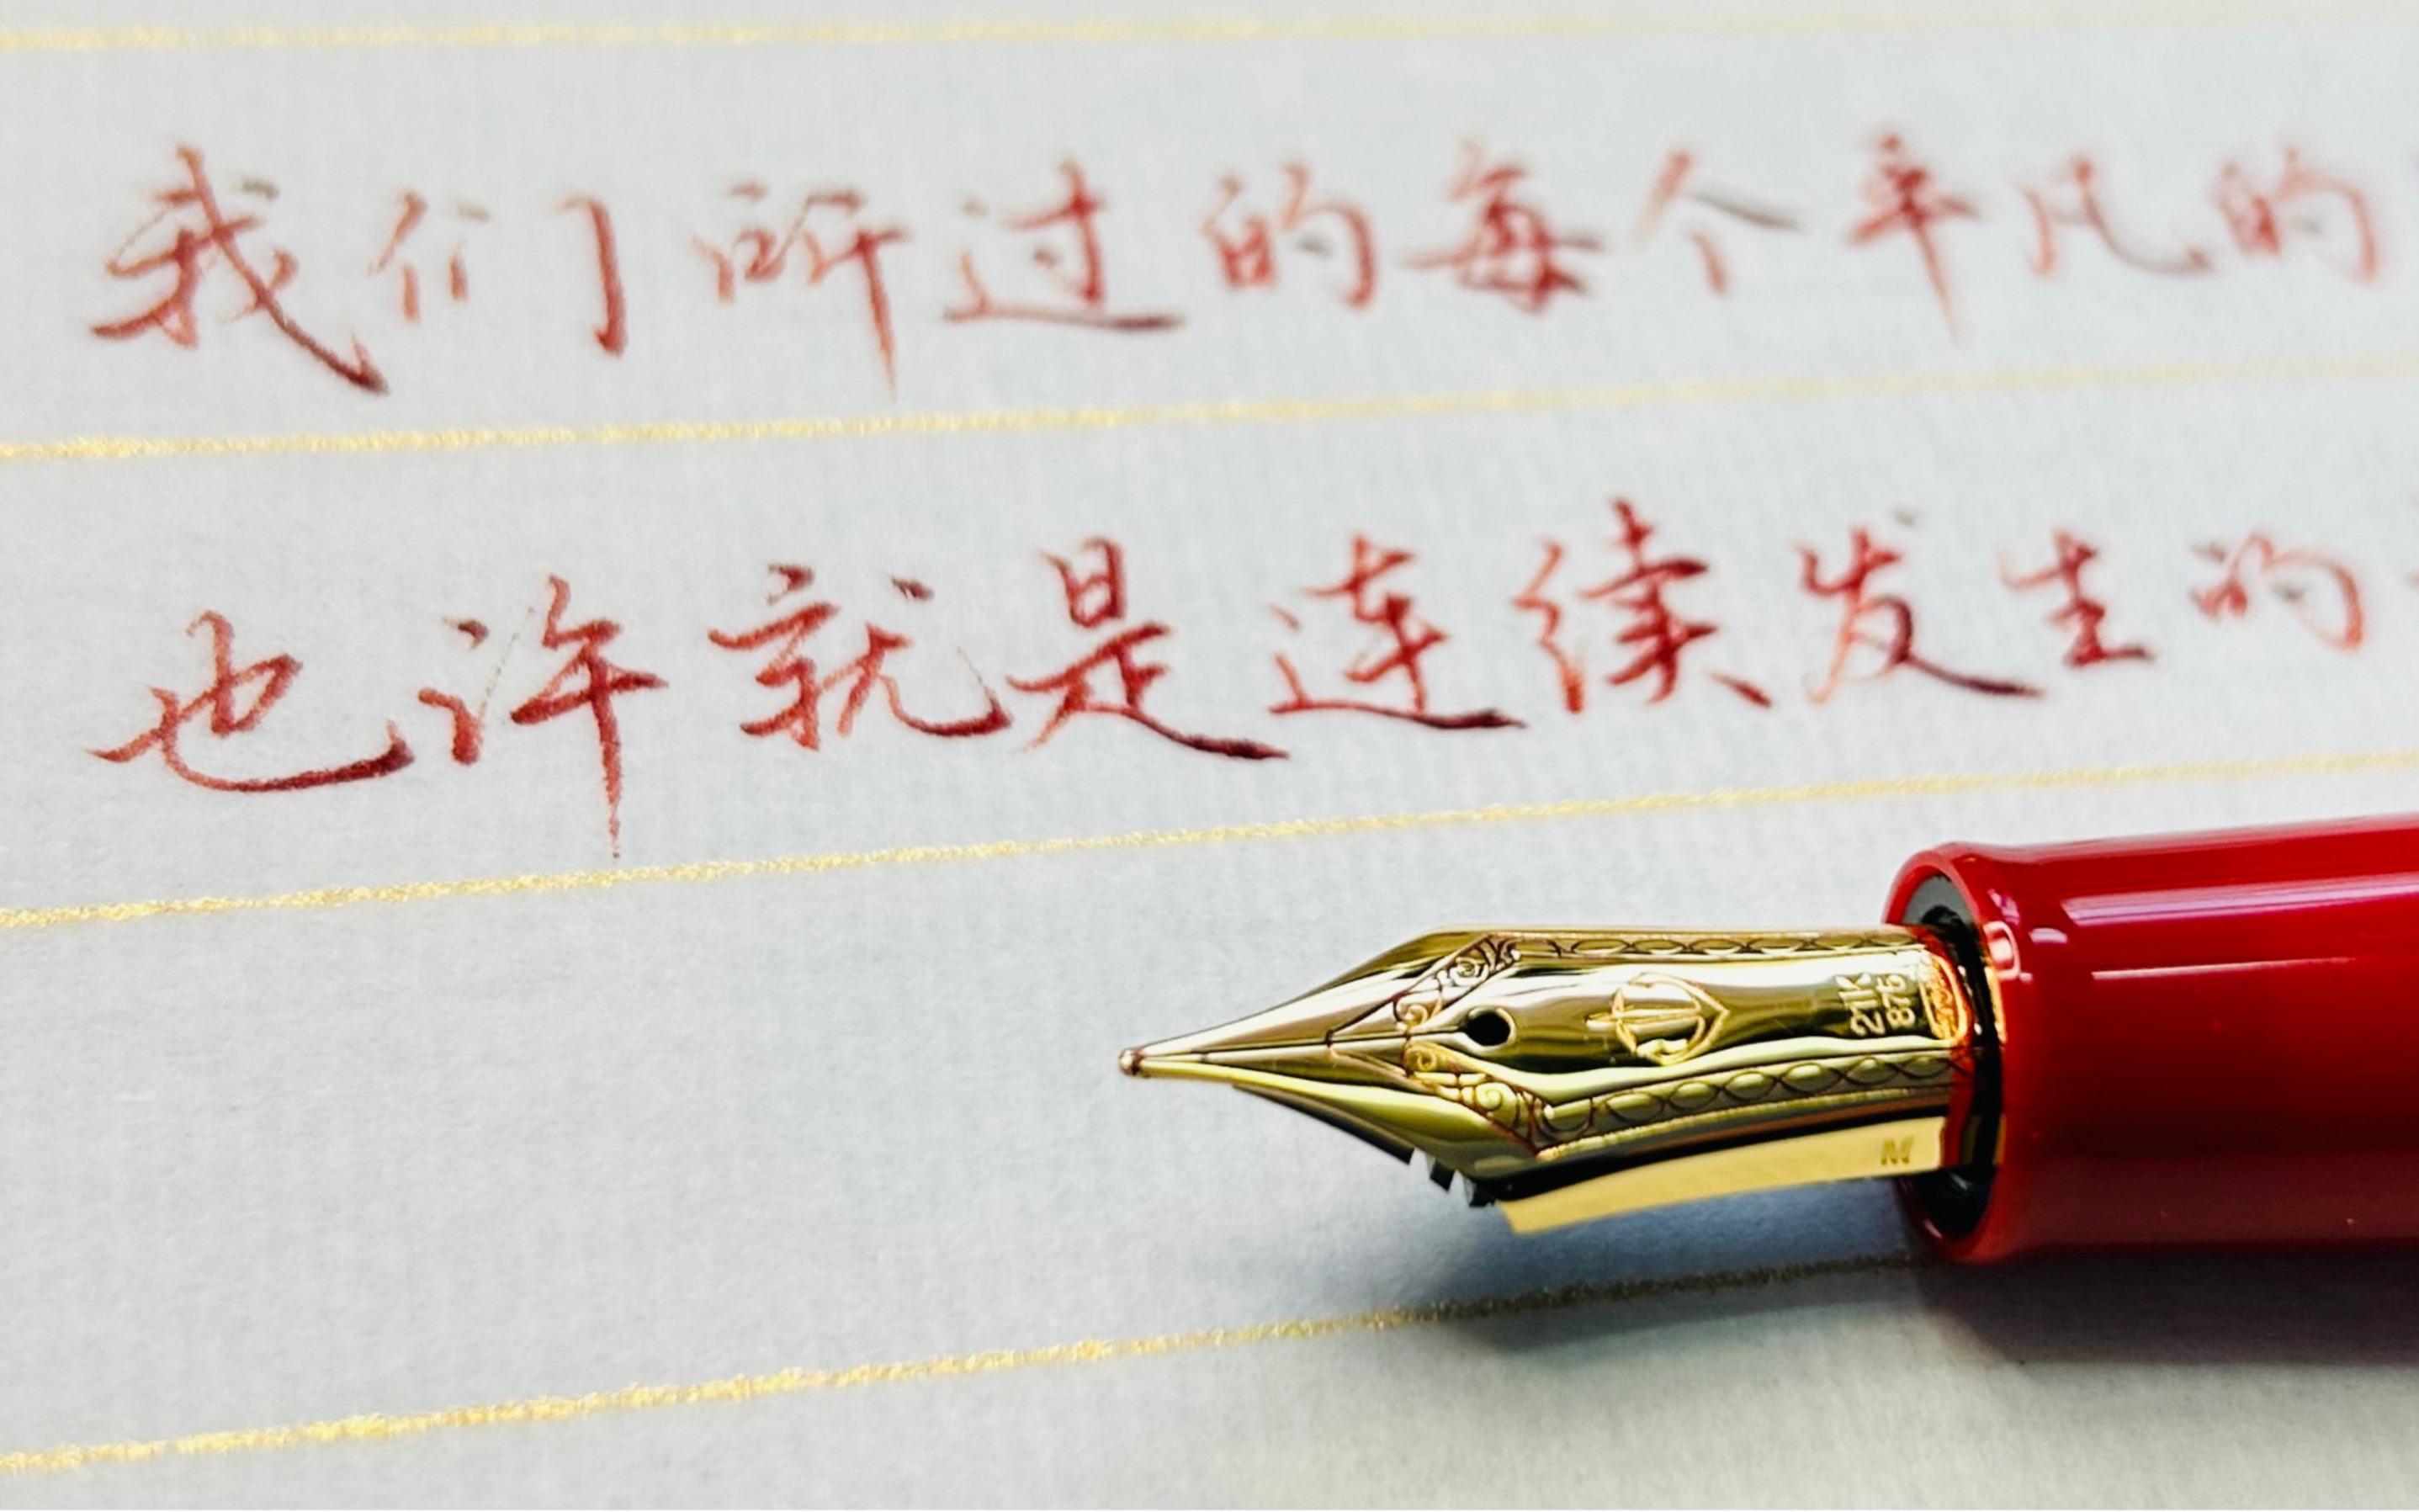 我们所过的每个平凡的
也许就是连续发生的
21K
875
M